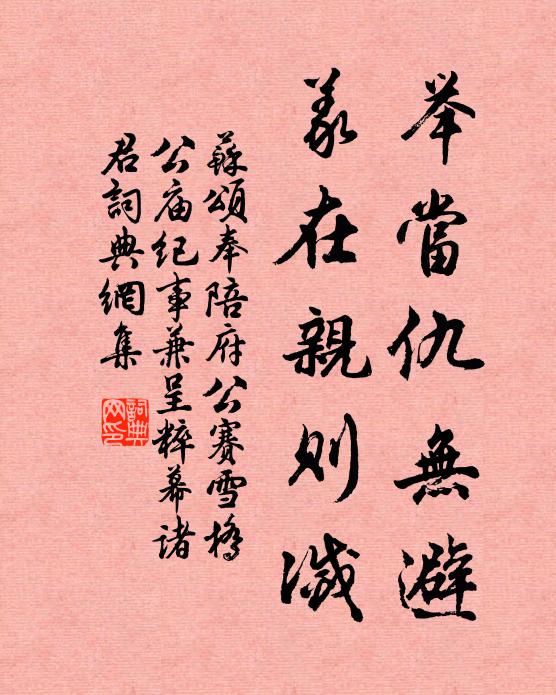 举當仇無避
義在親則滅
蘇頌奉陪府公賽雪橋
公庙纪事兼呈粹幕诸
君詞典網集
詞典网印